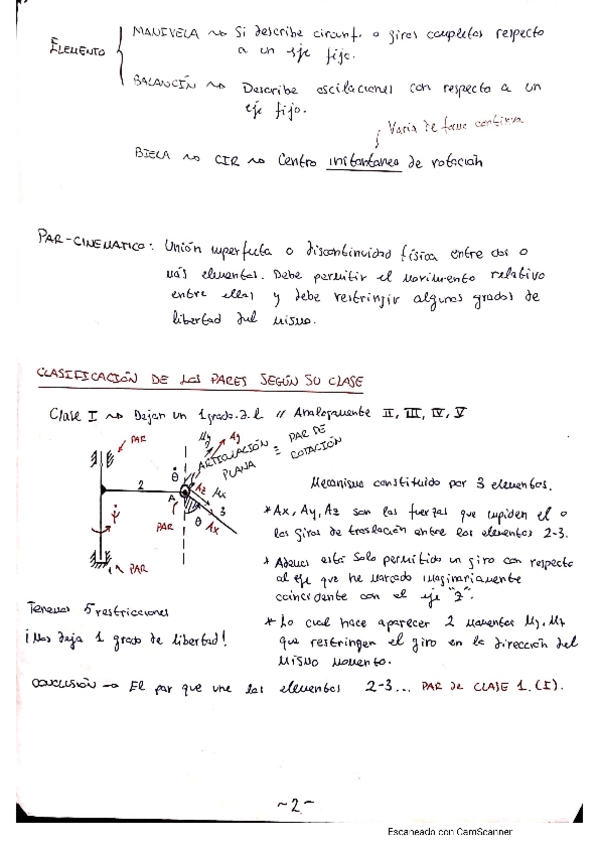 ELEMENTO
MANIVELA ~> Si describe circunf. o giros completos respecto
a un eje fijo.
BALANCÍN ~> Describe oscilaciones con respecto a un
eje fijo.
Varía de forma continua
BIELA ~> CIR ~> Centro instantáneo de rotación
PAR-CINEMATICO: Unión imperfecta o discontinuidad física entre dos o
más elementos. Debe permitir el movimiento relativo
entre ellos y debe restringir algunos grados de
libertad del mismo.
CLASIFICACIÓN DE LOS PARES SEGÚN SU CLASE
Clase I ~> Dejan un 1 grado.d.l // Analogamente II, III, IV, V
PAR
My
Ay
ARTICULACIÓN PLANA ≡ PAR DE ROTACIÓN
2
θ̇
Az
Mx
A
3
PAR
θ
Ax
ψ̇
PAR
Mecanismo constituido por 3 elementos.
* Ax, Ay, Az son las fuerzas que impiden el o
los giros de traslación entre los elementos 2-3.
* Ademas está solo permitido un giro con respecto
al eje que he marcado imaginariamente
coincidente con el eje "z".
* Lo cual hace aparecer 2 momentos My, Mx
que restringen el giro en la dirección del
mismo momento.
Tenemos 5 restricciones
¡Nos deja 1 grado de libertad!
CONCLUSIÓN -> El par que une los elementos 2-3... PAR de CLASE 1. (I).
~2~
Escaneado con CamScanner